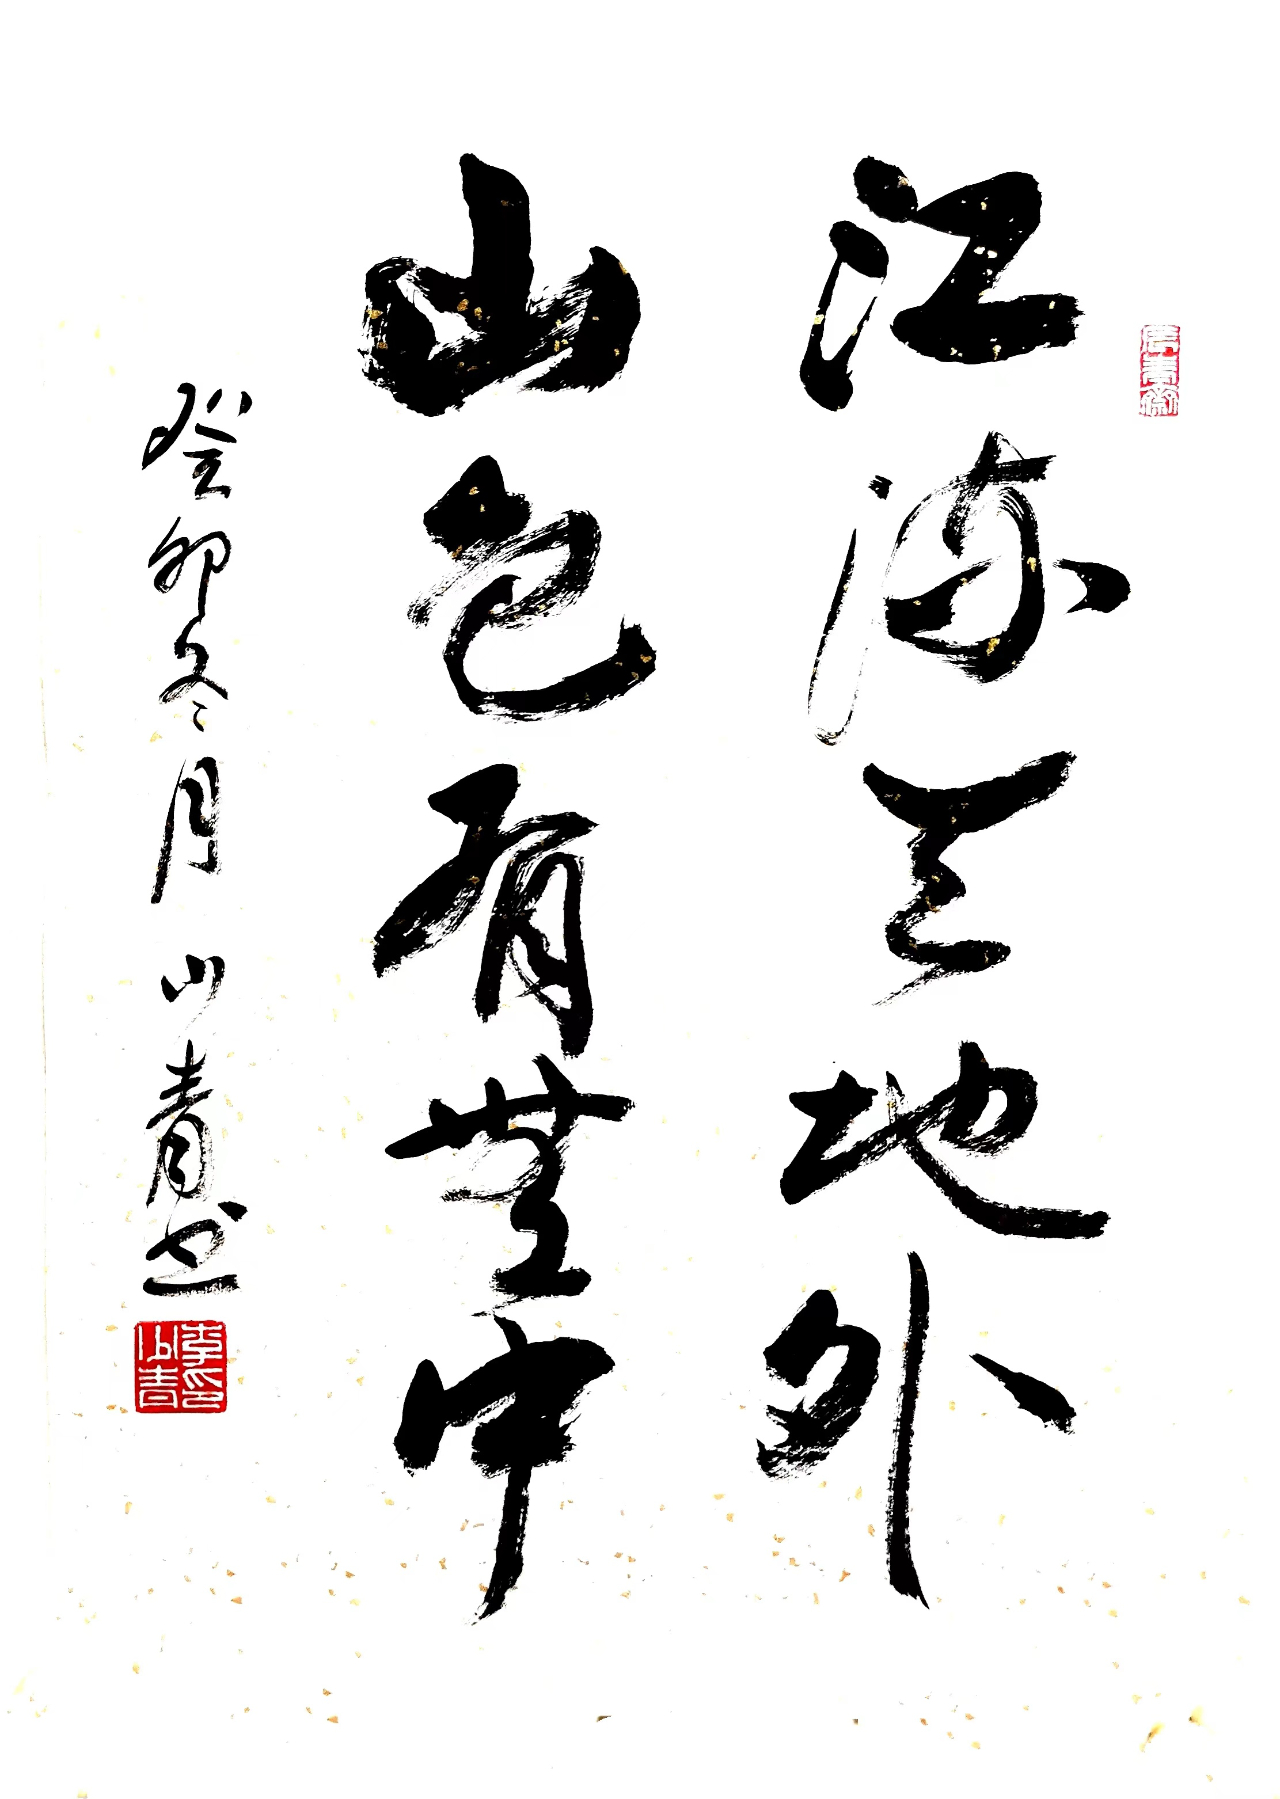 江流天地外
山色有無中
癸卯冬月 山青書
李印山青